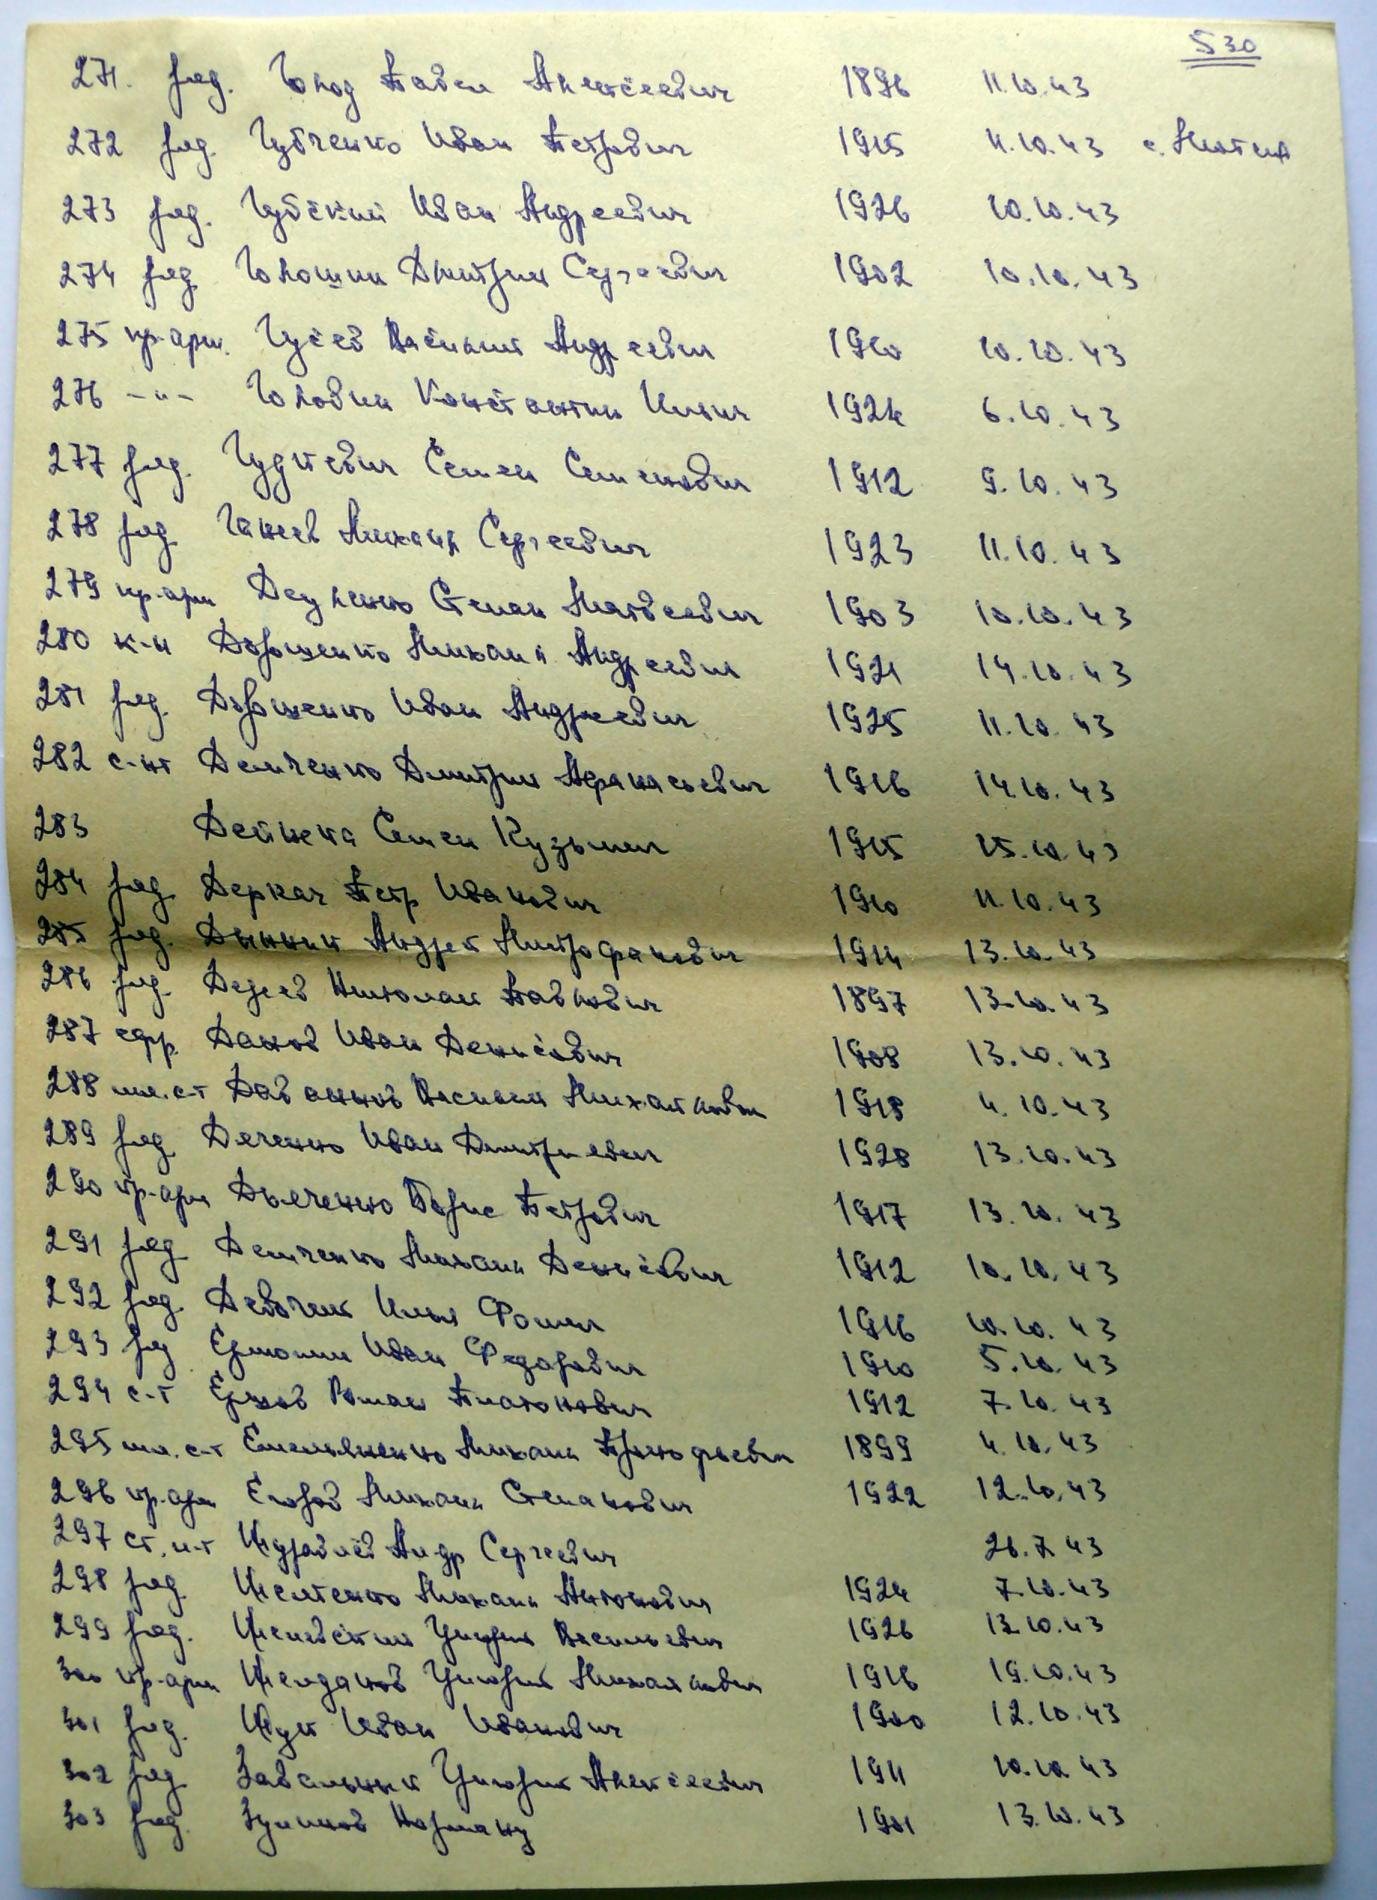 530
271. ряд. Голод Павел Алексеевич 1896 11.10.43
272 ряд. Губченко Иван Петрович 1915 11.10.43 с.
273 ряд. Губский Иван Андреевич 1926 10.10.43
274 ряд. Голошин Дмитрий Сергеевич 1902 10.10.43
275 кр-арм. Гусев Василий Андреевич 1910 10.10.43
276 -"- Головин Константин Ильич 1924 6.10.43
277 ряд. Гудкевич Семен Семенович 1912 9.10.43
278 ряд. Ганеев Михаил Сергеевич 1923 11.10.43
279 кр-арм Степан Матвеевич 1903 10.10.43
280 к-н Дорошенко Михаил Андреевич 1921 14.10.43
281 ряд. Дорошенко Иван Андреевич 1925 11.10.43
282 с-нт Демченко Дмитрий Афанасьевич 1916 14.10.43
283 Дейнека Семен Кузьмич 1915 15.10.43
284 ряд. Деркач Петр Иванович 1910 11.10.43
285 ряд. Андрей Митрофанович 1914 13.10.43
286 ряд. Николай Павлович 1897 13.10.43
287 ефр. Иван Денисович 1908 13.10.43
288 мл.с-т Василий Михайлович 1918 4.10.43
289 ряд Дяченко Иван Дмитриевич 1928 13.10.43
290 кр-арм Дьяченко Борис Петрович 1917 13.10.43
291 ряд Демченко Михаил Денисович 1912 10.10.43
292 ряд. Девочкин Илья Фомич 1916 10.10.43
293 ряд Ермошин Иван Федорович 1910 5.10.43
294 с-т Ершов Роман Платонович 1912 7.10.43
295 мл.с-т Емельяненко Михаил Прокофьевич 1899 4.10.43
296 кр.арм Егоров Михаил Степанович 1922 12.10.43
297 ст.л-т Журавлёв Андр Сергеевич 26.7.43
298 ряд. Михаил Антонович 1924 7.10.43
299 ряд. Григорий Васильевич 1926 13.10.43
300 кр-арм Григорий Михайлович 1916 19.10.43
301 ряд. Жук Иван Иванович 1900 12.10.43
302 ряд Завальный Григорий Алексеевич 1911 10.10.43
303 ряд. 1901 13.10.43